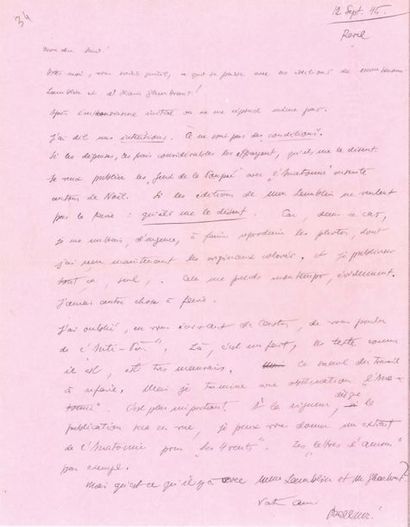 34
12 Sept. 45.
Revel
Mon cher ami!
Dites-moi, vous serez gentil, ce qui se passe avec les éditions de
Lamblin et d'Alain Gheerbrant!
Après
on ne me répond même pas.
J'ai dit mes intentions. Ce ne sont pas des conditions.
Si les dépenses, les frais considérables les effrayent, qu'ils me le disent
Je veux publier les "Jeux de la Poupée" avec "l'Anatomie"
de Noël. Si les éditions de Mme Lamblin ne veulent
pas le faire : qu'ils me le disent. Car, dans ce cas,
je me mettrai, d'urgence, à faire reproduire les photos, dont
j'ai maintenant les originaux coloriés. et je publierai
tout ça, seul. Cela me perds mon temps, évidemment.
J'aurais autre chose à faire.
J'ai oublié, en vous écrivant de Castres, de vous parler
de l'
Là, c'est un fait, le texte comme
il est, est très mauvais.
ce serait du travail
à refaire. Mais je termine une
"l'Anatomie".
C'est plus important! À la rigueur, si
la
publication en vue, je peux vous donner un extrait
de l'Anatomie pour "les 4 vents". Les "lettres d'amour"
par exemple.
Mais qu'est-ce qu'il y a avec Mme Lamblin et M. Gheerbrant?
Votre ami
Bellmer!